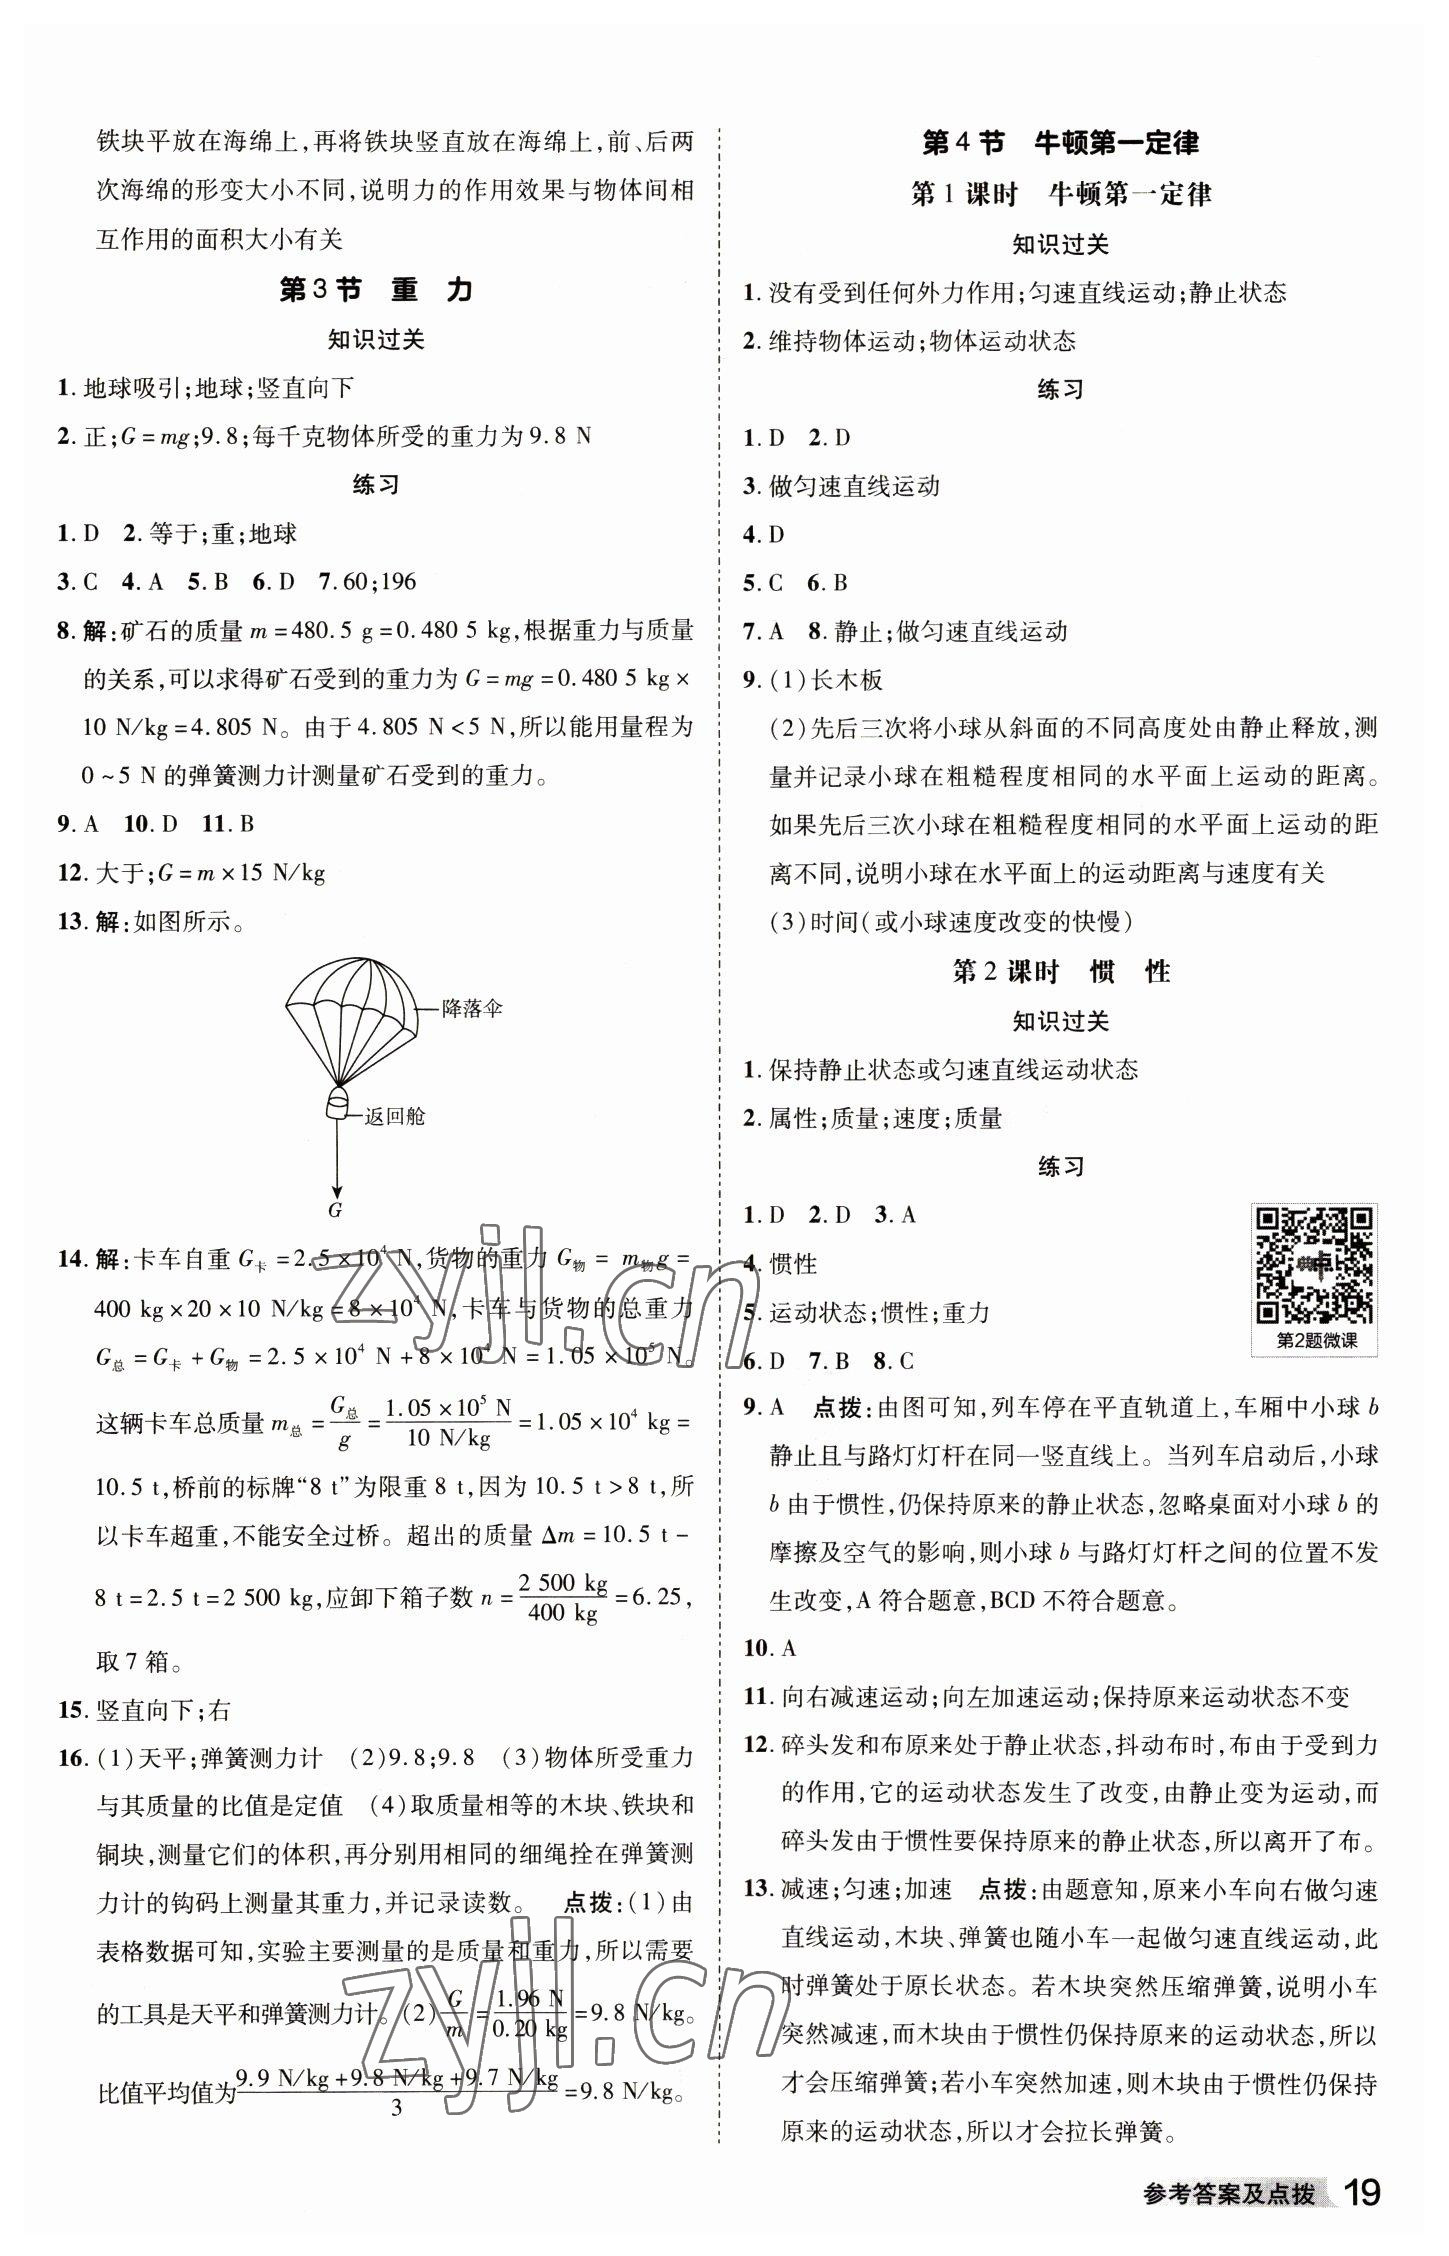 铁块平放在海绵上,再将铁块竖直放在海绵上,前、后两
次海绵的形变大小不同,说明力的作用效果与物体间相
互作用的面积大小有关
第3节 重 力
知识过关
1.地球吸引;地球;竖直向下
2.正;G=mg;9.8;每千克物体所受的重力为9.8 N
练习
1.D 2.等于;重;地球
3.C 4.A 5.B 6.D 7.60;196
8.解:矿石的质量m=480.5 g=0.480 5 kg,根据重力与质量
的关系,可以求得矿石受到的重力为G=mg=0.480 5 kg×
10 N/kg=4.805 N。由于4.805 N<5 N,所以能用量程为
0~5 N的弹簧测力计测量矿石受到的重力。
9.A 10.D 11.B
12.大于;G=m×15 N/kg
13.解:如图所示。
降落伞
返回舱
G
14.解:卡车自重G卡=2.5×10⁴ N,货物的重力G物=m物g=
400 kg×20×10 N/kg=8×10⁴ N,卡车与货物的总重力
G总=G卡+G物=2.5×10⁴ N+8×10⁴ N=1.05×10⁵ N。
这辆卡车总质量m总=G总/g=1.05×10⁵ N/10 N/kg=1.05×10⁴ kg=
10.5 t,桥前的标牌“8 t”为限重8 t,因为10.5 t>8 t,所
以卡车超重,不能安全过桥。超出的质量Δm=10.5 t-
8 t=2.5 t=2 500 kg,应卸下箱子数n=2 500 kg/400 kg=6.25,
取7箱。
15.竖直向下;右
16.(1)天平;弹簧测力计 (2)9.8;9.8 (3)物体所受重力
与其质量的比值是定值 (4)取质量相等的木块、铁块和
铜块,测量它们的体积,再分别用相同的细绳拴在弹簧测
力计的钩码上测量其重力,并记录读数。 点拨:(1)由
表格数据可知,实验主要测量的是质量和重力,所以需要
的工具是天平和弹簧测力计。(2)G/m=1.96 N/0.20 kg=9.8 N/kg。
比值平均值为9.9 N/kg+9.8 N/kg+9.7 N/kg/3=9.8 N/kg。
第4节 牛顿第一定律
第1课时 牛顿第一定律
知识过关
1.没有受到任何外力作用;匀速直线运动;静止状态
2.维持物体运动;物体运动状态
练习
1.D 2.D
3.做匀速直线运动
4.D
5.C 6.B
7.A 8.静止;做匀速直线运动
9.(1)长木板
(2)先后三次将小球从斜面的不同高度处由静止释放,测
量并记录小球在粗糙程度相同的水平面上运动的距离。
如果先后三次小球在粗糙程度相同的水平面上运动的距
离不同,说明小球在水平面上的运动距离与速度有关
(3)时间(或小球速度改变的快慢)
第2课时 惯 性
知识过关
1.保持静止状态或匀速直线运动状态
2.属性;质量;速度;质量
练习
1.D 2.D 3.A
4.惯性
5.运动状态;惯性;重力
6.D 7.B 8.C
第2题微课
9.A 点拨:由图可知,列车停在平直轨道上,车厢中小球b
静止且与路灯灯杆在同一竖直线上。当列车启动后,小球
b由于惯性,仍保持原来的静止状态,忽略桌面对小球b的
摩擦及空气的影响,则小球b与路灯灯杆之间的位置不发
生改变,A符合题意,BCD不符合题意。
10.A
11.向右减速运动;向左加速运动;保持原来运动状态不变
12.碎头发和布原来处于静止状态,抖动布时,布由于受到力
的作用,它的运动状态发生了改变,由静止变为运动,而
碎头发由于惯性要保持原来的静止状态,所以离开了布。
13.减速;匀速;加速 点拨:由题意知,原来小车向右做匀速
直线运动,木块、弹簧也随小车一起做匀速直线运动,此
时弹簧处于原长状态。若木块突然压缩弹簧,说明小车
突然减速,而木块由于惯性仍保持原来的运动状态,所以
才会压缩弹簧;若小车突然加速,则木块由于惯性仍保持
原来的运动状态,所以才会拉长弹簧。
zyjl.cn
zyjl.cn
参考答案及点拨 19